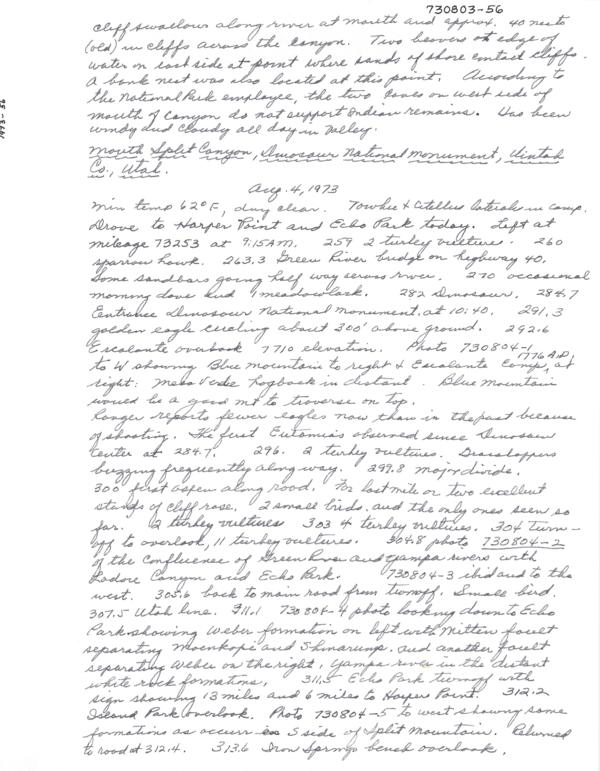 730803-56
cliff swallows along river at mouth and approx. 40 nests
(old) in cliffs across the canyon. Two beavers at edge of
water on east side at point where sands of shore contact cliffs.
A bank nest was also located at this point. According to
the National Park employee, the two caves on west side of
mouth of canyon do not support Indian remains. Has been
windy and cloudy all day in valley.
Mouth Split Canyon, Dinosaur National Monument, Uintah
Co., Utah.
Aug. 4, 1973
Min temp 62°F, day clear. Towhee & Citellus lateralis in camp.
Drove to Harper Point and Echo Park today. Left at
mileage 73253 at 9:15 AM. 259 2 turkey vultures. 260
sparrow hawk. 263.3 Green River bridge on highway 40.
Some sandbars going half way across river. 270 occasional
morning dove and 1 meadowlark. 282 Dinosaur. 284.7
Entrance Dinosaur National Monument, at 10:40. 291.3
golden eagle circling about 300' above ground. 292.6
Escalante overlook 7710 elevation. Photo 730804-1
to W showing Blue Mountain to right & Escalante Camp, 1776 A.D., at
right: Mesa Verde hogback in distant. Blue Mountain
would be a good mt to traverse on top.
Ranger reports fewer eagles now than in the past because
of shooting. The first Eutamias observed since Dinosaur
Center at 284.7. 296. 2 turkey vultures. Grasshoppers
buzzing frequently along way. 299.8 major divide.
300 first aspen along road. For last mile or two excellent
stands of cliff rose. 2 small birds, and the only ones seen so
far. 2 turkey vultures 303 4 turkey vultures. 304 turn-
off to overlook, 11 turkey vultures. 304.8 photo 730804-2
of the confluence of Green River and Yampa rivers with
Lodore Canyon and Echo Park. 730804-3 ibid and to the
west. 305.6 back to main road from turnoff. Small bird.
307.5 Utah line. 311.1 730804-4 photo looking down to Echo
Park showing Weber formation on left with Mitten fault
separating Moenkopi and Shinarump, and another fault
separating Weber on the right, Yampa river in the distant
white rock formations. 311.5 Echo Park turnoff with
sign showing 13 miles and 6 miles to Harper Point. 312.2
Island Park overlook. Photo 730804-5 to west showing some
formations as occur on S side of Split Mountain. Returned
to road at 312.4. 313.6 Iron Springs bench overlook.